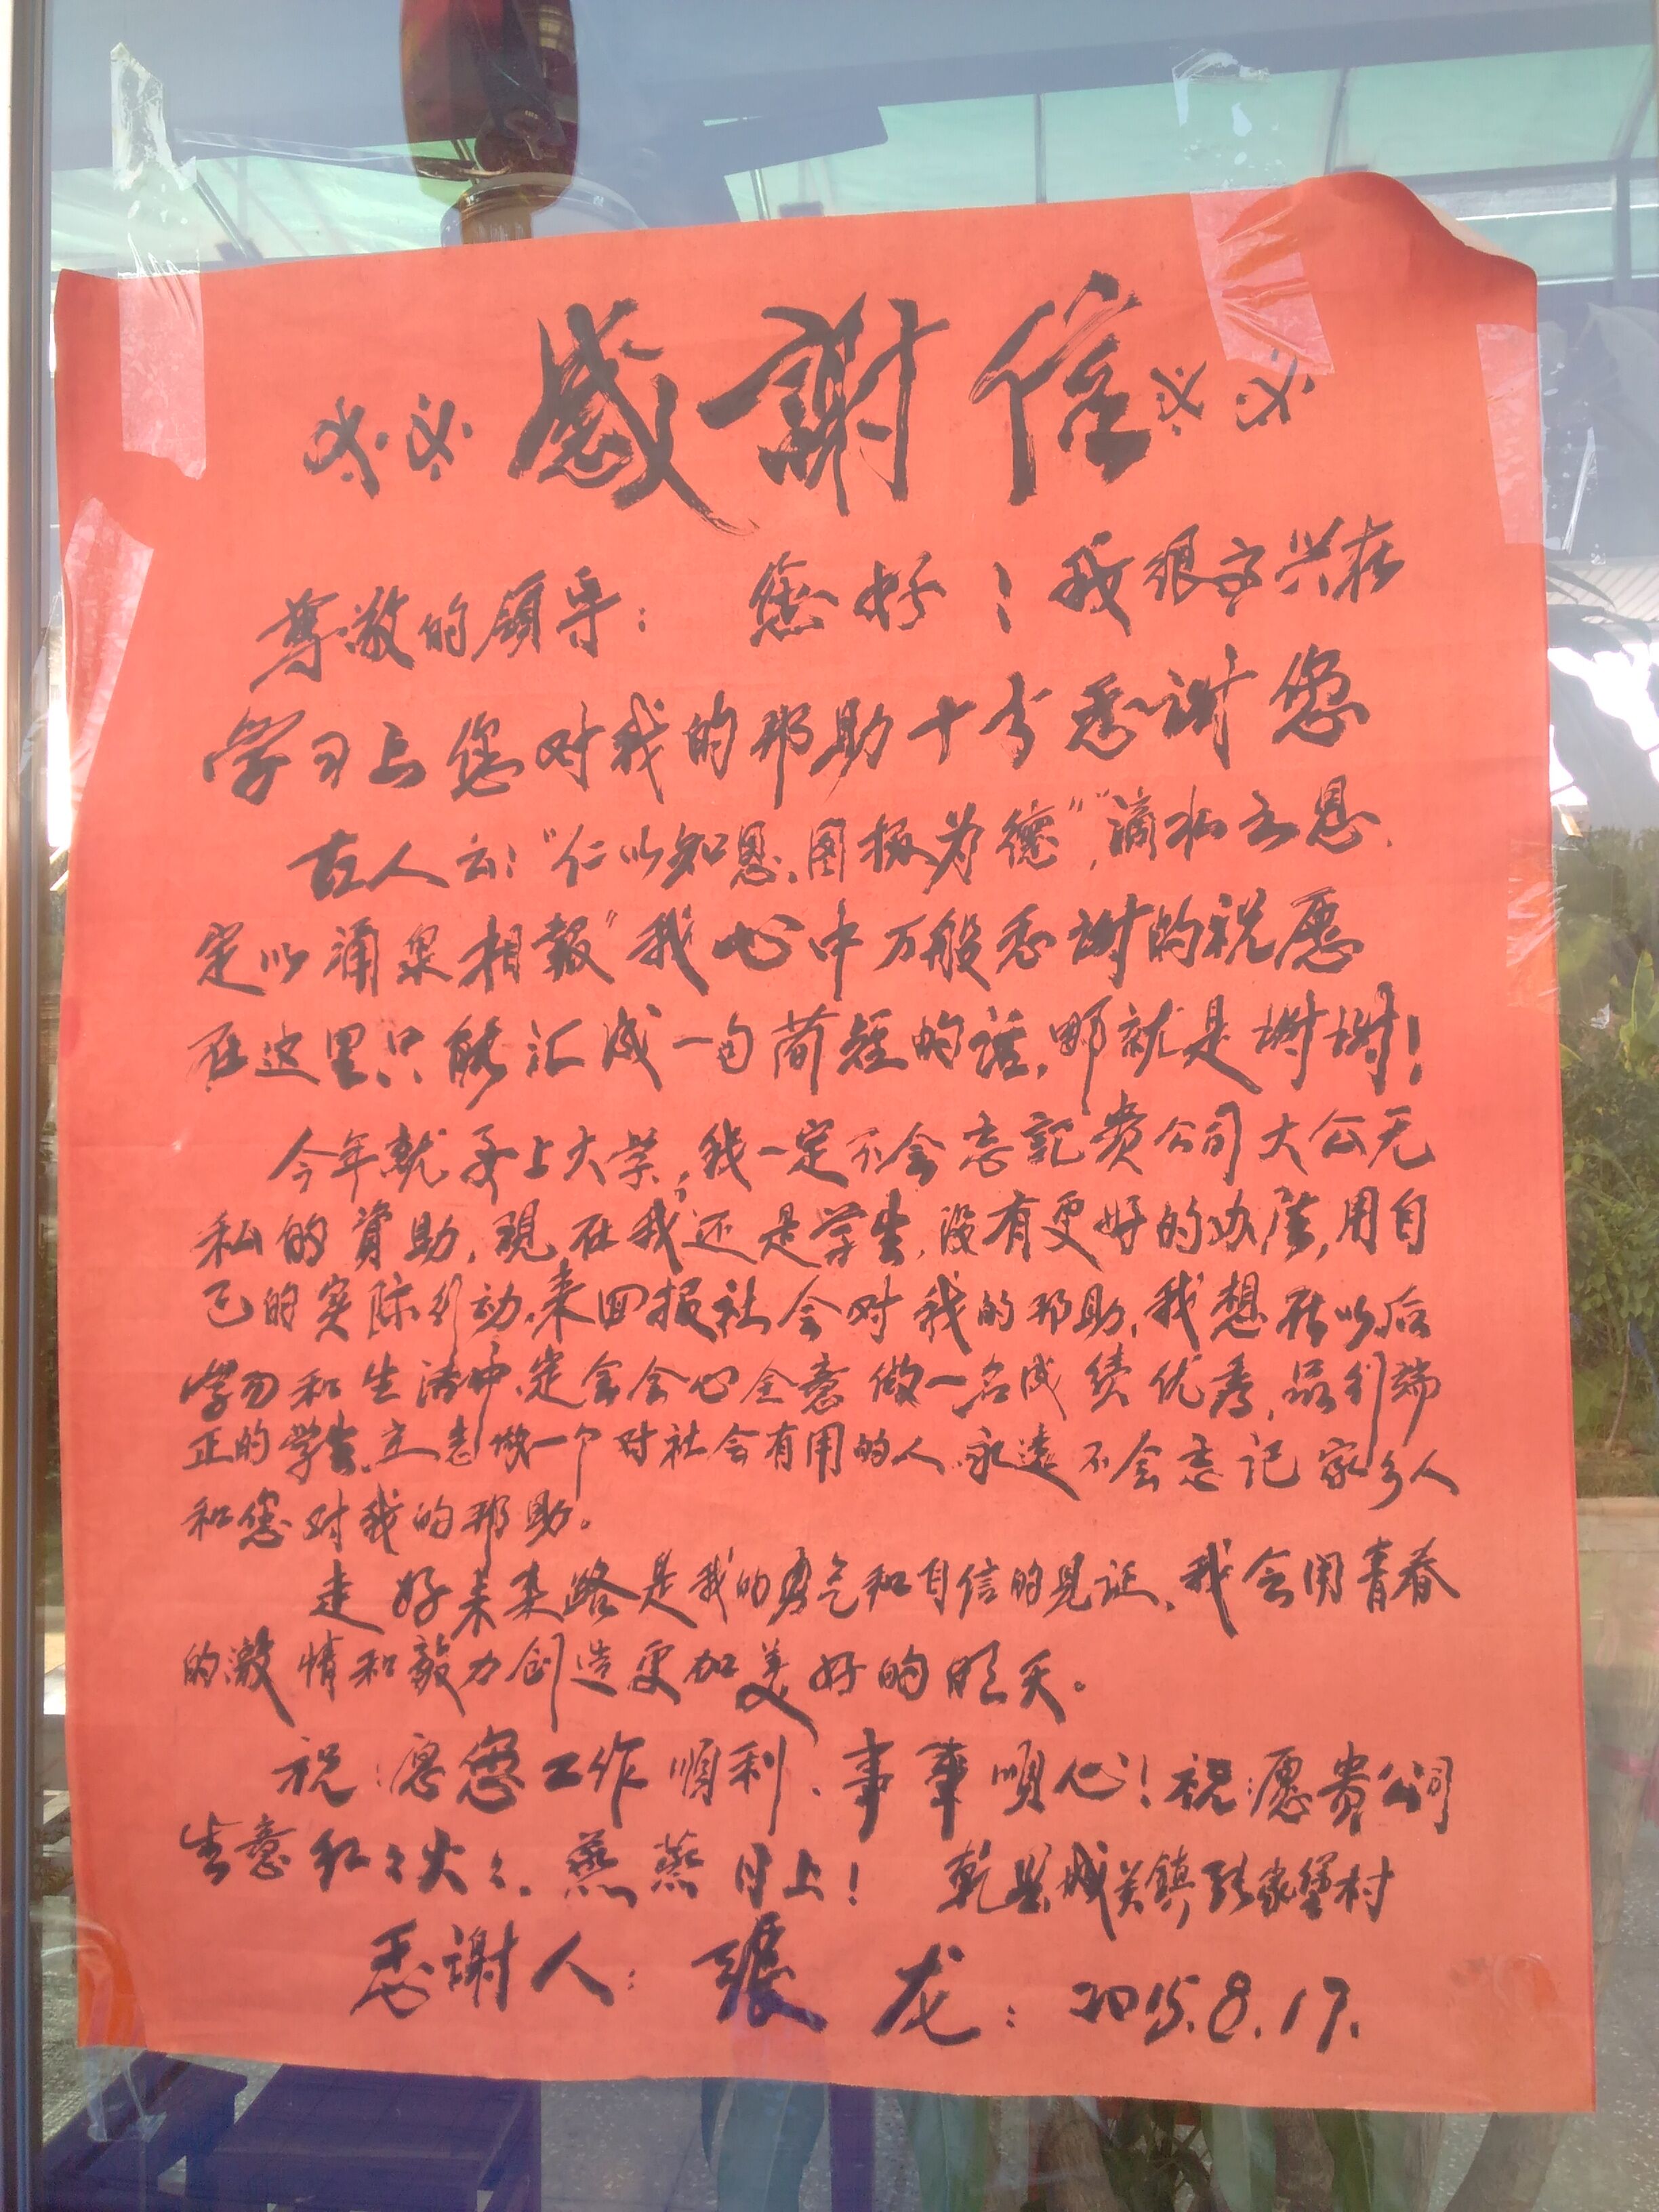 感謝信
尊敬的領导：您好！我很高兴在
学习上您对我的帮助十分感谢您
古人云："仁以知恩、图报为德"，"滴水之恩、
定以涌泉相報"我心中万般感謝的祝愿
在这里只能汇成一句简短的话，那就是謝謝！
今年就要上大学，我一定不会忘記贵公司大公无
私的資助，現在我还是学生，没有更好的办法，用自
己的实际行动来回报社会对我的帮助，我想在以后
学习和生活中，定会全心全意做一名成绩优秀，品行端
正的学生，立志做一个对社会有用的人，永远不会忘记家乡人
和您对我的帮助。
走好未来路是我的勇气和自信的见证，我会用青春
的激情和毅力创造更加美好的明天。
祝：愿您工作順利、事事順心！祝：愿贵公司
生意红红火火、蒸蒸日上！ 乾县城关鎮张家堡村
感謝人：張龙：2015.8.17.